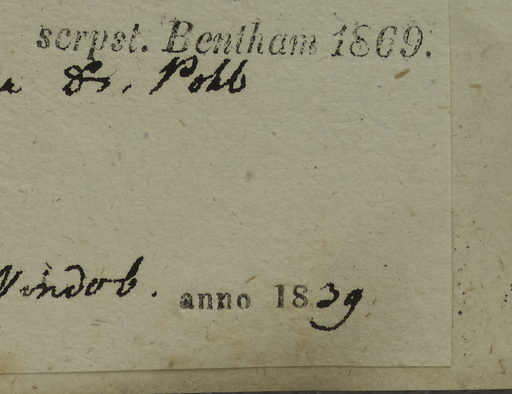 scrpst. Bentham 1869.
Dr. Pohl
Vindob. anno 1839